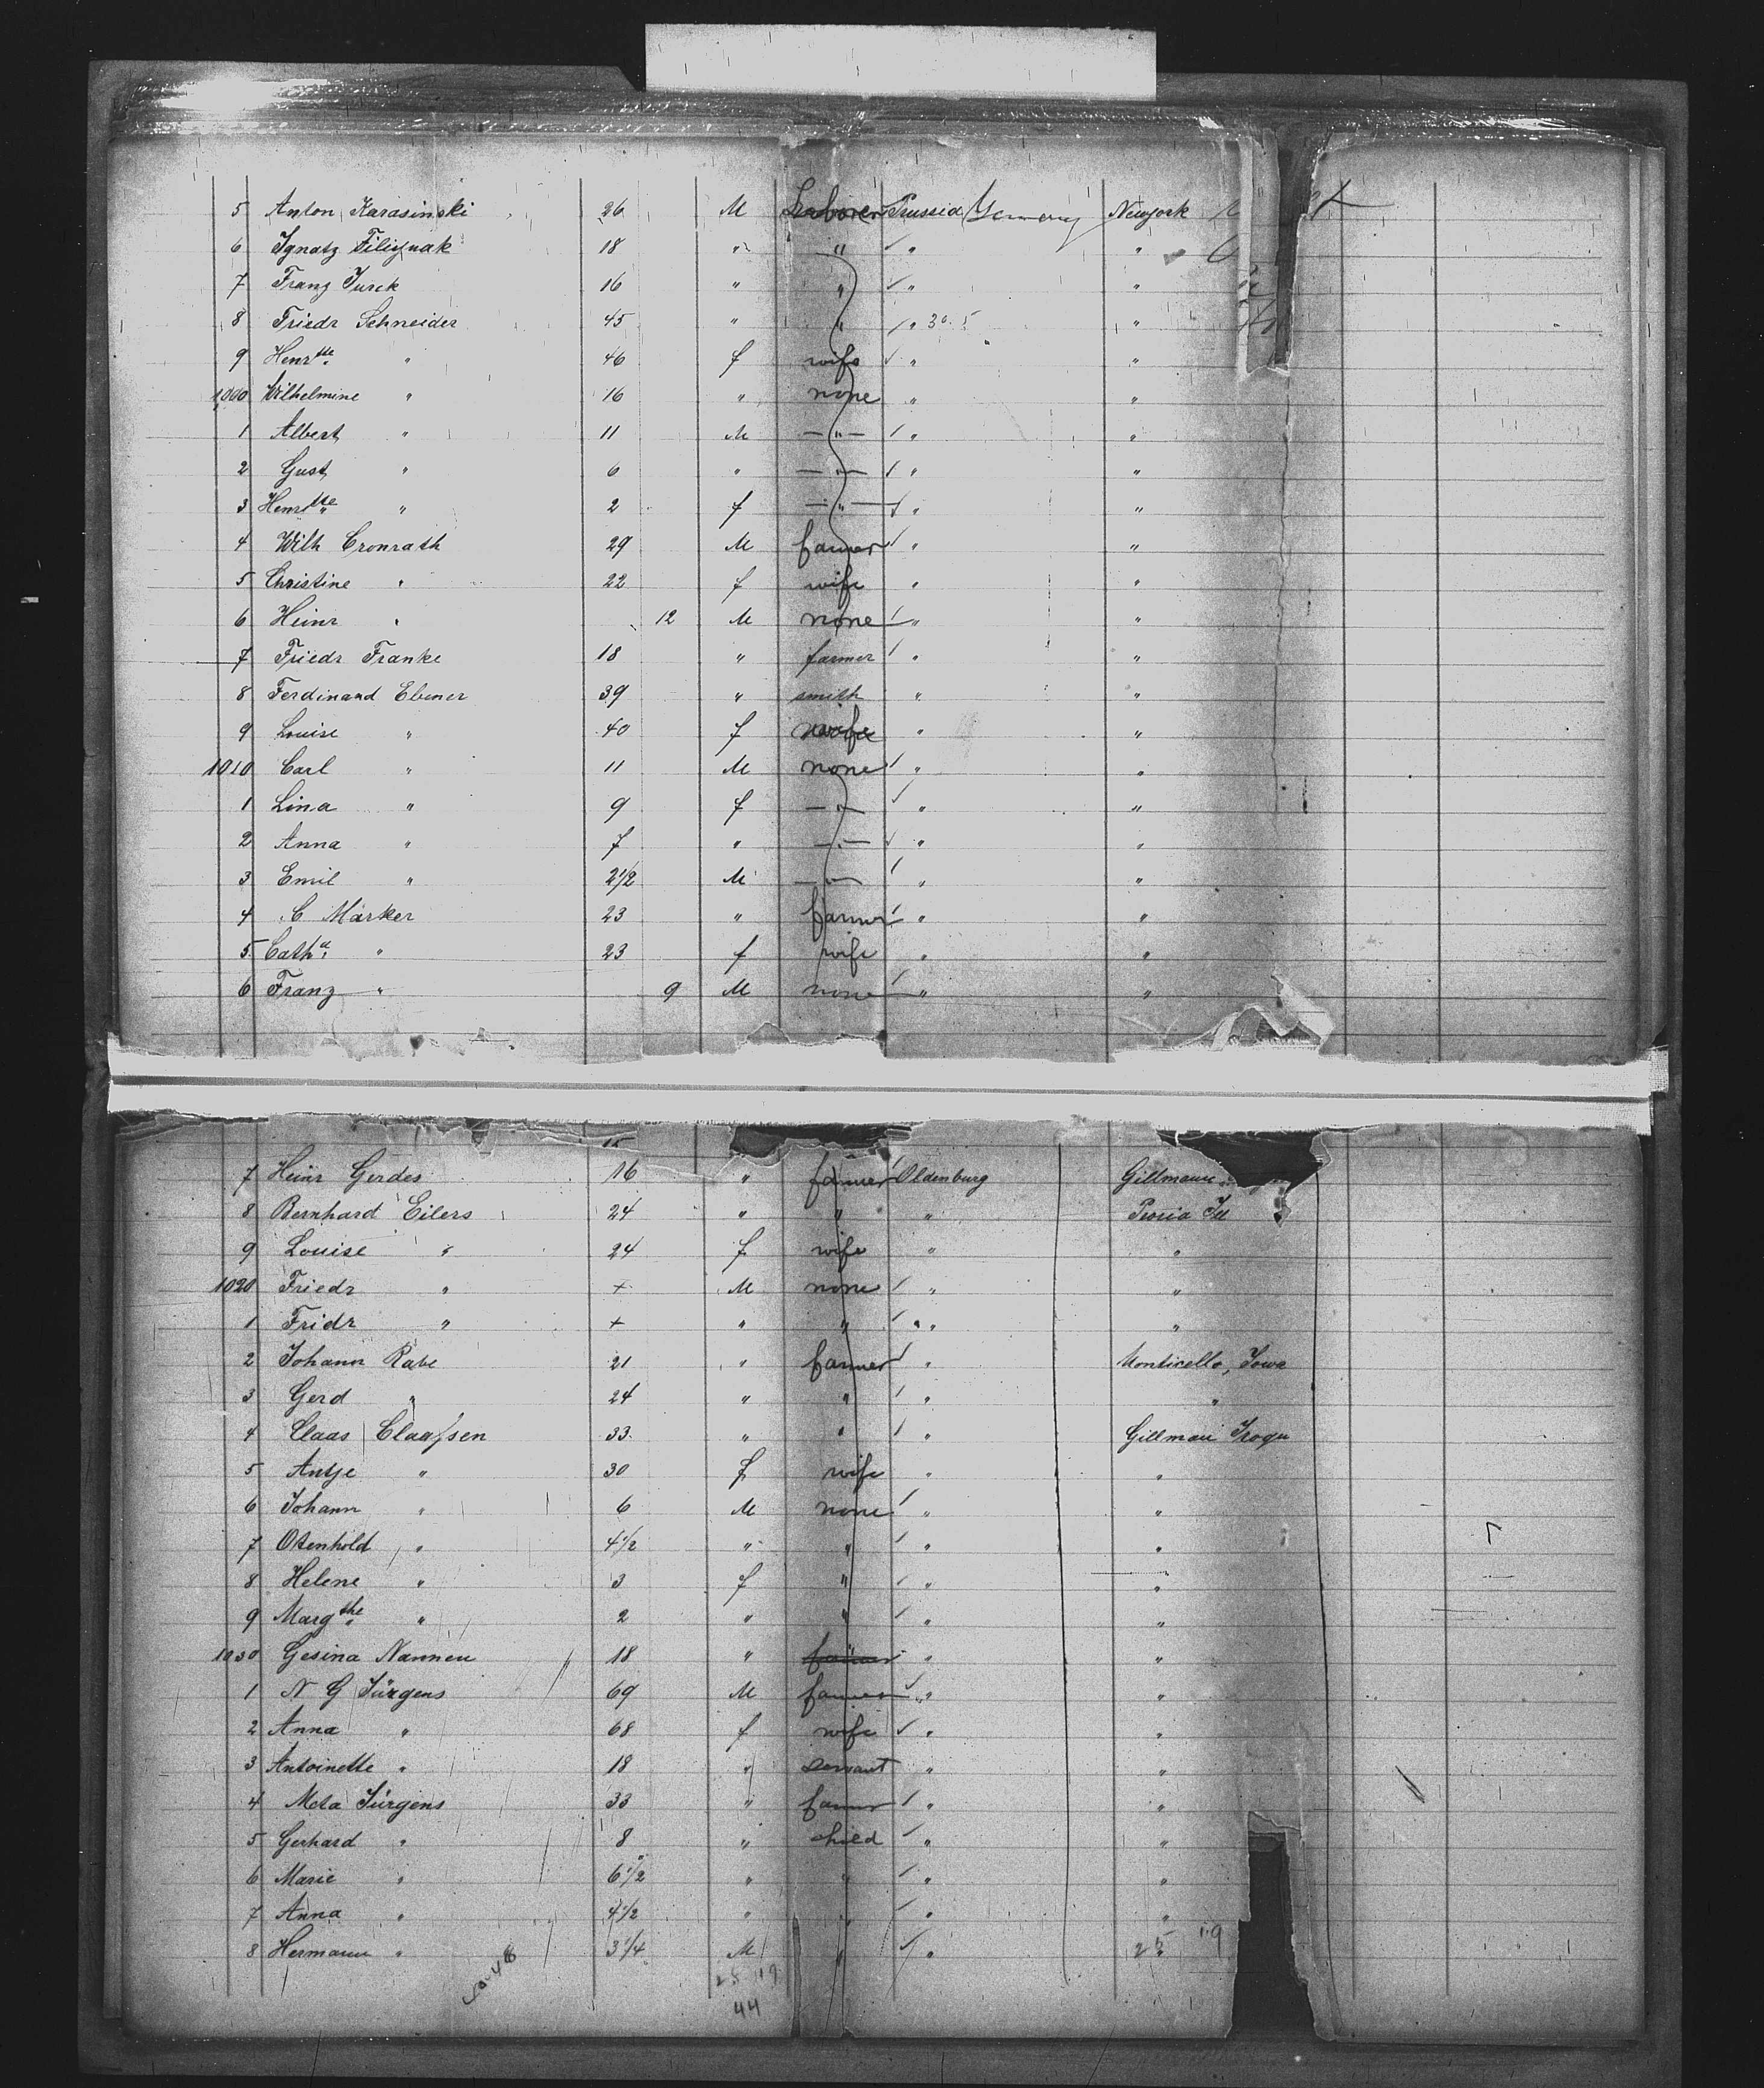 5 Anton Karasinski 26 M Laborer Prussia Germany Newyork
6 Ignatz 18 " " " "
7 Franz Jurek 16 " " " "
8 Friedr Schneider 45 " " " 30. 5 "
9 Henrtte " 46 f wife " "
1000 Wilhelmine " 16 " none " "
1 Albert " 11 M " " "
2 Gust " 6 " " " "
3 Henrtte " 2 f " " "
4 Wilh Cronrath 29 M farmer " "
5 Christine " 22 f wife " "
6 Heinr " 12 M none " "
7 Friedr Franke 18 " farmer " "
8 Ferdinand Ebener 39 " smith " "
9 Louise " 40 f wife " "
1010 Carl " 11 M none " "
1 Lina " 9 f " " "
2 Anna " 7 " " " "
3 Emil " 2 1/2 M " " "
4 C Märker 23 " farmer " "
5 Catha " 23 f wife " "
6 Franz " 9 M none " "
7 Heinr Gerdes 16 " farmer Oldenburg Gillmann
8 Bernhard Eilers 24 " " " Peoria Ill
9 Louise " 24 f wife " "
1020 Friedr " + M none " "
1 Fridr " + " " " "
2 Johann Rabe 21 " farmer " Monticello, Iowa
3 Gerd " 24 " " " "
4 Claas Claaßsen 33 " " " Gillman Iroqu
5 Antje " 30 f wife " "
6 Johann " 6 M none " "
7 Otenhold " 4 1/2 " " " "
8 Helene " 3 f " " "
9 Margthe " 2 " " " "
1030 Gesina Nannen 18 " farmer " "
1 N G Jürgens 69 M farmer " "
2 Anna " 68 f wife " "
3 Antoinette " 18 " servant " "
4 Meta Jürgens 33 " farmer " "
5 Gerhard " 8 " child " "
6 Marie " 6 1/2 " " " "
7 Anna " 4 1/2 " " " "
8 Hermann " 3 1/4 M " " 25 19
25 19
44